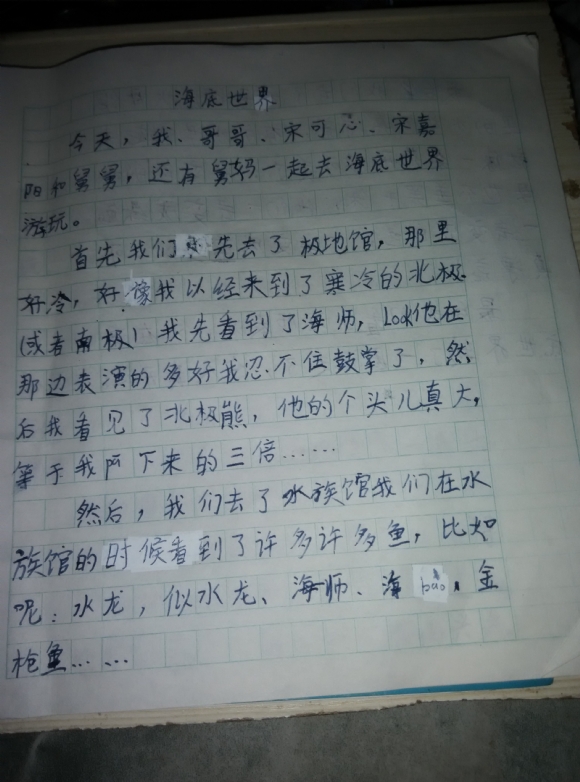 海底世界
今天，我、哥哥、宋可心、宋嘉
阳和舅舅，还有舅妈一起去海底世界
游玩。
首先我们先去了极地馆，那里
好冷，好像我以经来到了寒冷的北极
(或者南极)我先看到了海师，Look他在
那边表演的多好我忍不住鼓掌了，然
后我看见了北极熊，他的个头儿真大，
等于我下来的三倍……
然后，我们去了水族馆我们在水
族馆的时候看到了许多许多鱼，比如
呢：水龙，似水龙、海师、海bào、金
枪鱼……